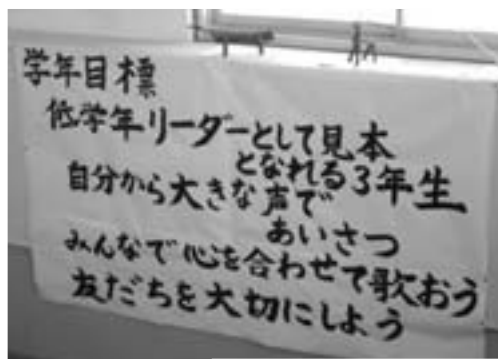 学年目標
低学年リーダーとして見本
となれる3年生
自分から大きな声で
あいさつ
みんなで心を合わせて歌おう
友だちを大切にしよう